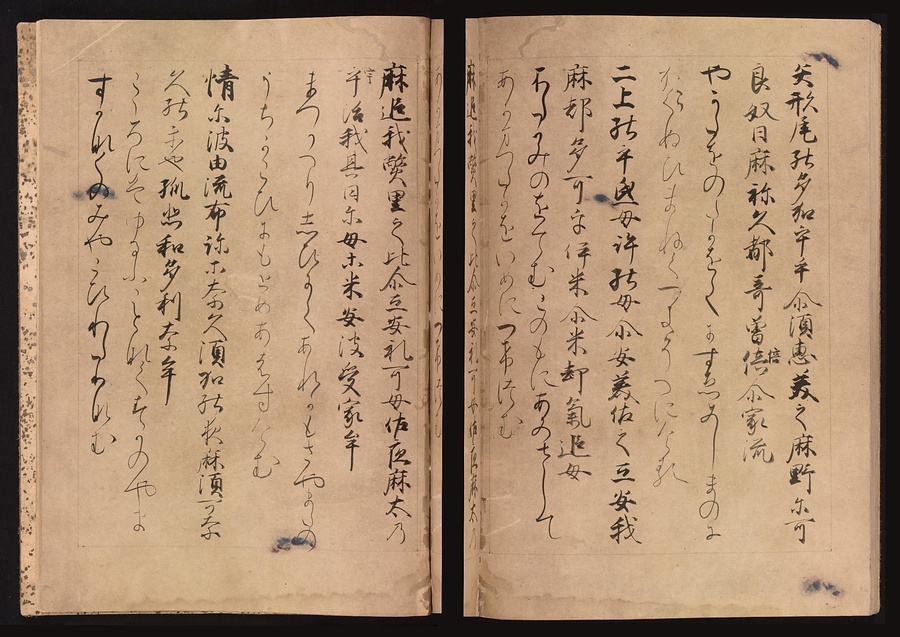 矢形尾能多加乎手尓須恵美之麻野尓可
良奴日麻祢久都哥倍尓家流
やかたをのたかをてにすゑみしまのに
からぬひまねく
二上能乎弖母許能母尓安美佐之弖安我
麻都多可乎伊米尓米都氣追母
ふたかみのをてむこのもにあみさして
あかまつたかをいめにつけつむ
麻追我敝里之比尓弖安礼可母佐夜麻太乃
乎治我其日尓母等米安波受家牟
まつかへりしひてあれかもさやまたの
をちかそひにもとめあはすけむ
情尓波由流布許等奈久須加能夜麻須可奈
久能未也孤悲和多利奈牟
こころにはゆるふことなくすかのやま
すかなくのみやこひわたりなむ